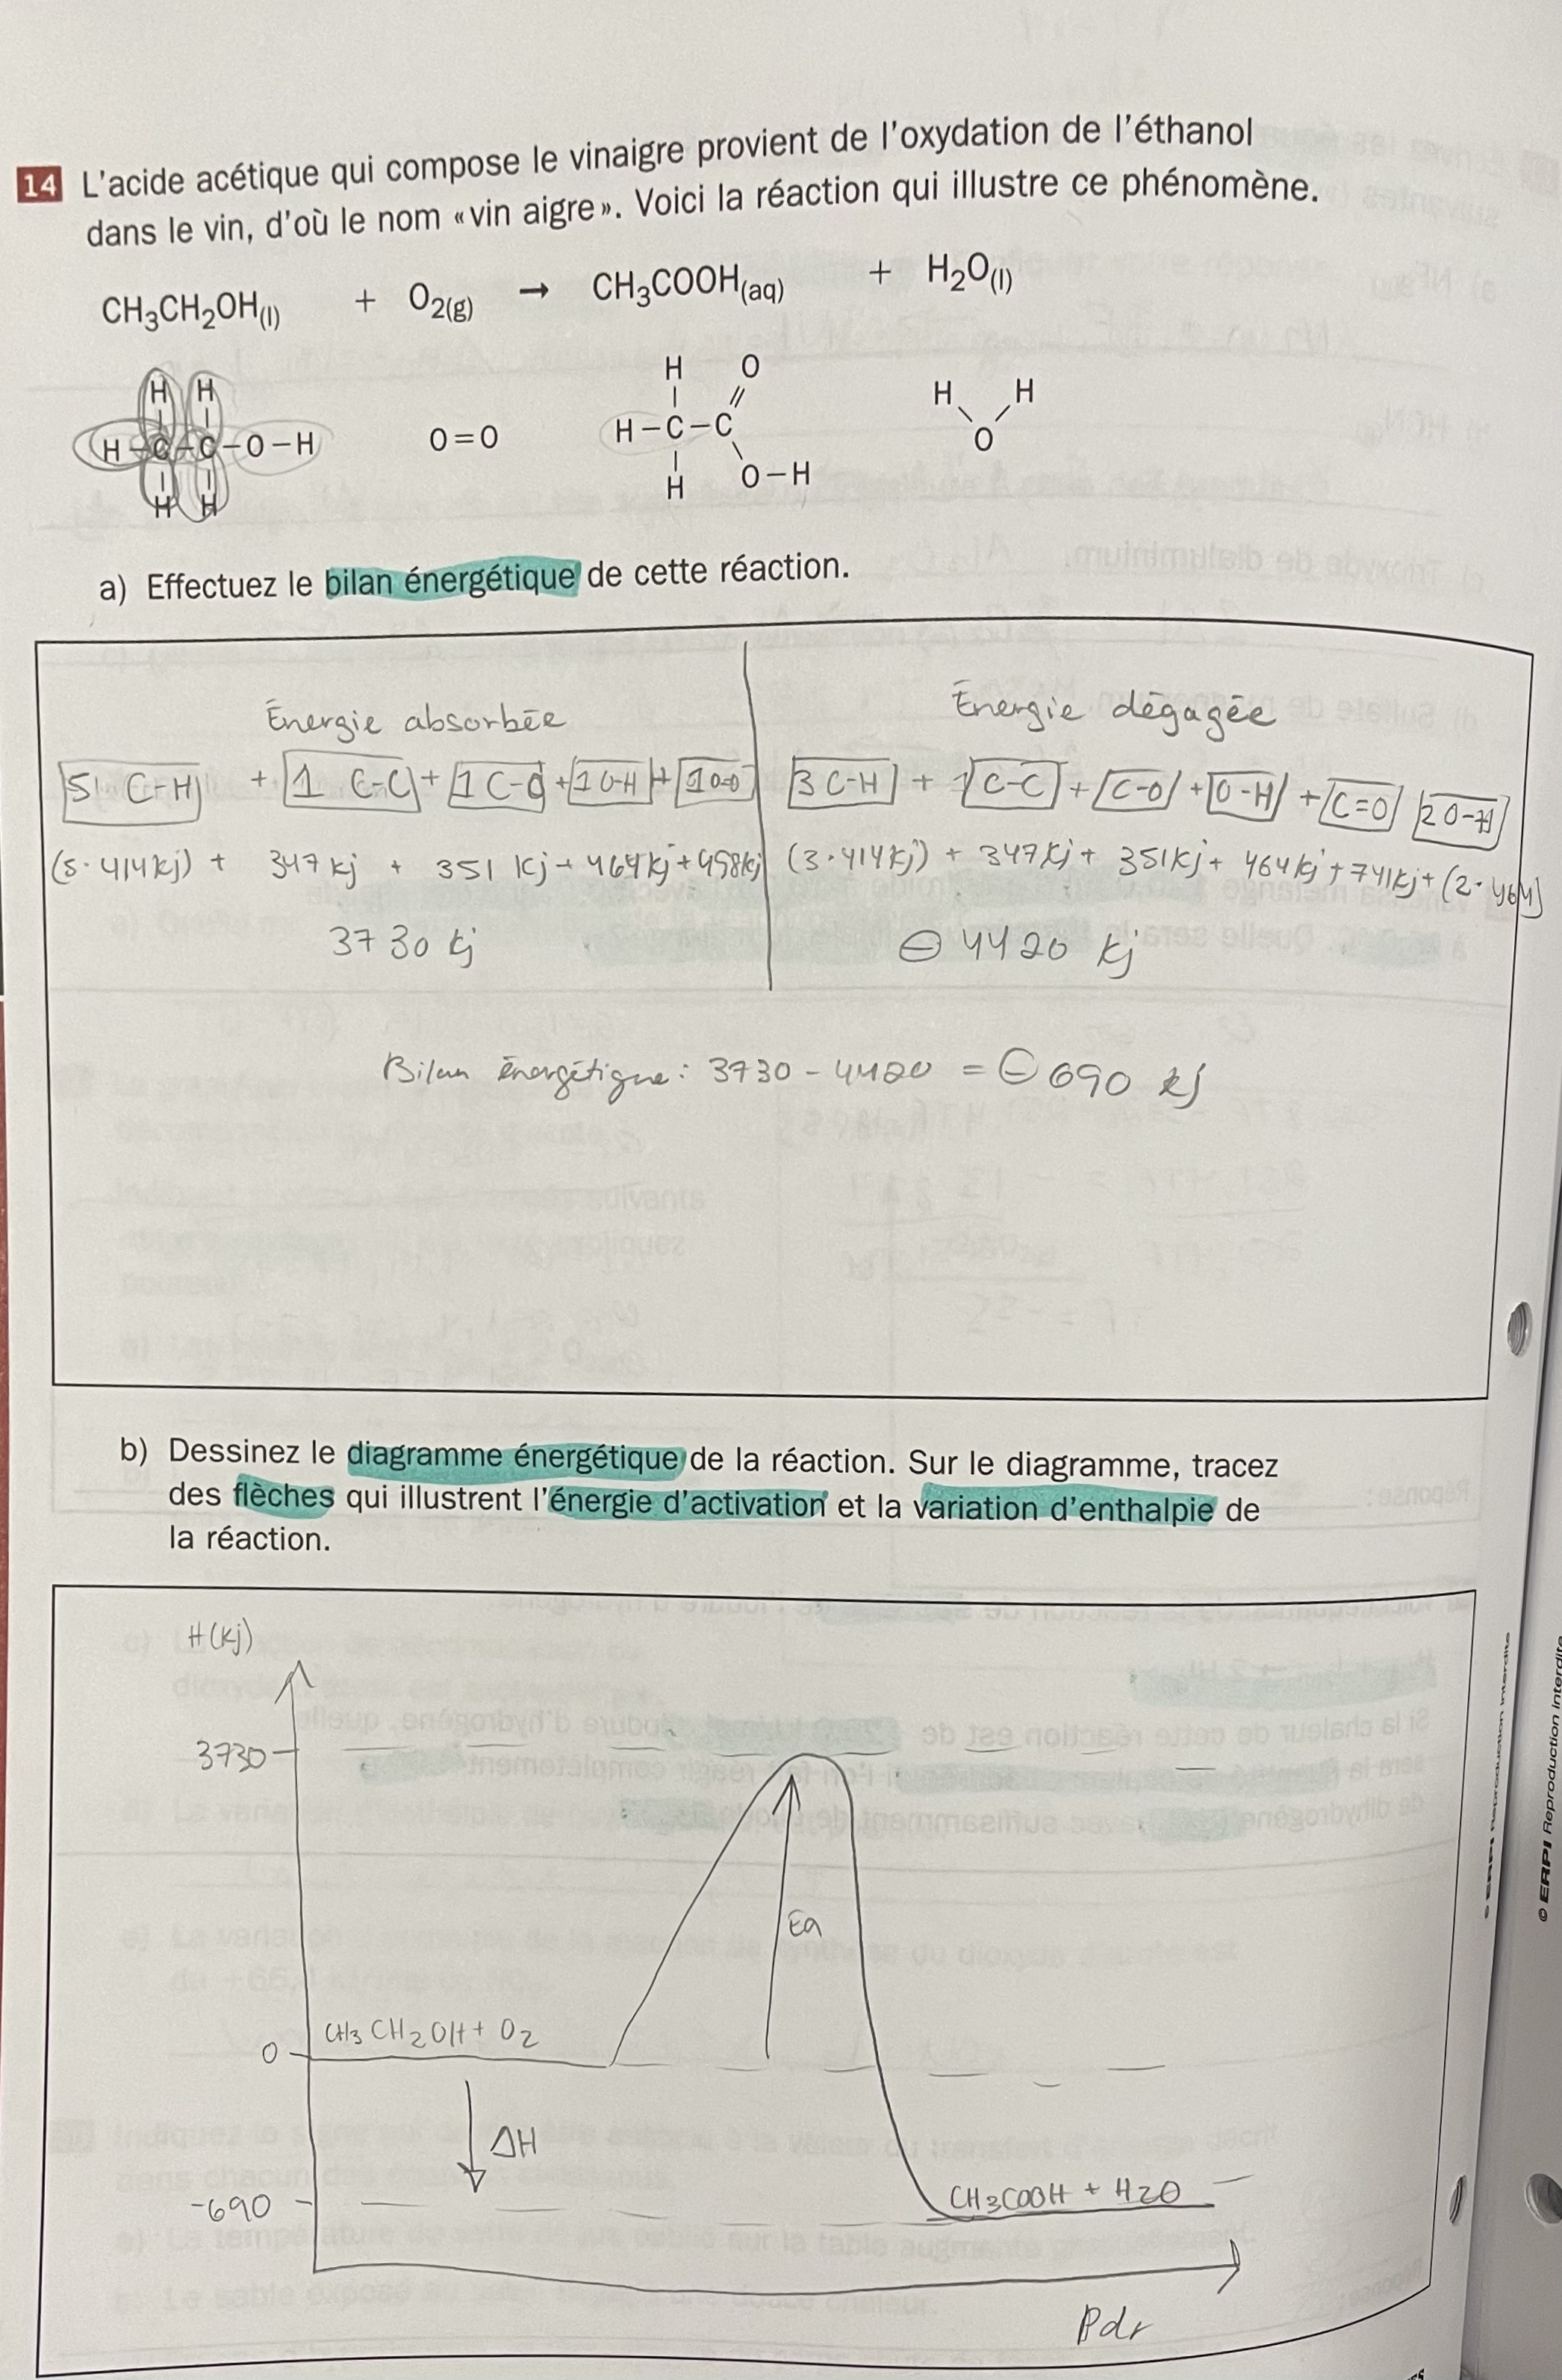 14 L'acide acétique qui compose le vinaigre provient de l'oxydation de l'éthanol
dans le vin, d'où le nom «vin aigre». Voici la réaction qui illustre ce phénomène.
CH₃CH₂OH(l) + O₂(g) → CH₃COOH(aq) + H₂O(l)
H H
H–C–C–O–H
H H
O=O
H O
H–C–C
H O–H
H H
O
a) Effectuez le bilan énergétique de cette réaction.
Énergie absorbée
Énergie dégagée
5 C-H + 1 C-C + 1 C-O + 1 O-H + 1 O=O
3 C-H + 1 C-C + C-O + O-H + C=O 2 O-H
(5·414kj) + 347 kj + 351 kj + 464kj + 498kj
(3·414kj) + 347kj + 351kj + 464kj + 741kj + (2·464)
3730 kj
- 4420 kj
Bilan énergétique: 3730 - 4420 = - 690 kj
b) Dessinez le diagramme énergétique de la réaction. Sur le diagramme, tracez
des flèches qui illustrent l'énergie d'activation et la variation d'enthalpie de
la réaction.
H(kj)
3730
Ea
CH₃CH₂OH + O₂
0
ΔH
-690
CH₃COOH + H₂O
Pdr
© ERPI Reproduction interdite
© ERPI Reproduction interdite